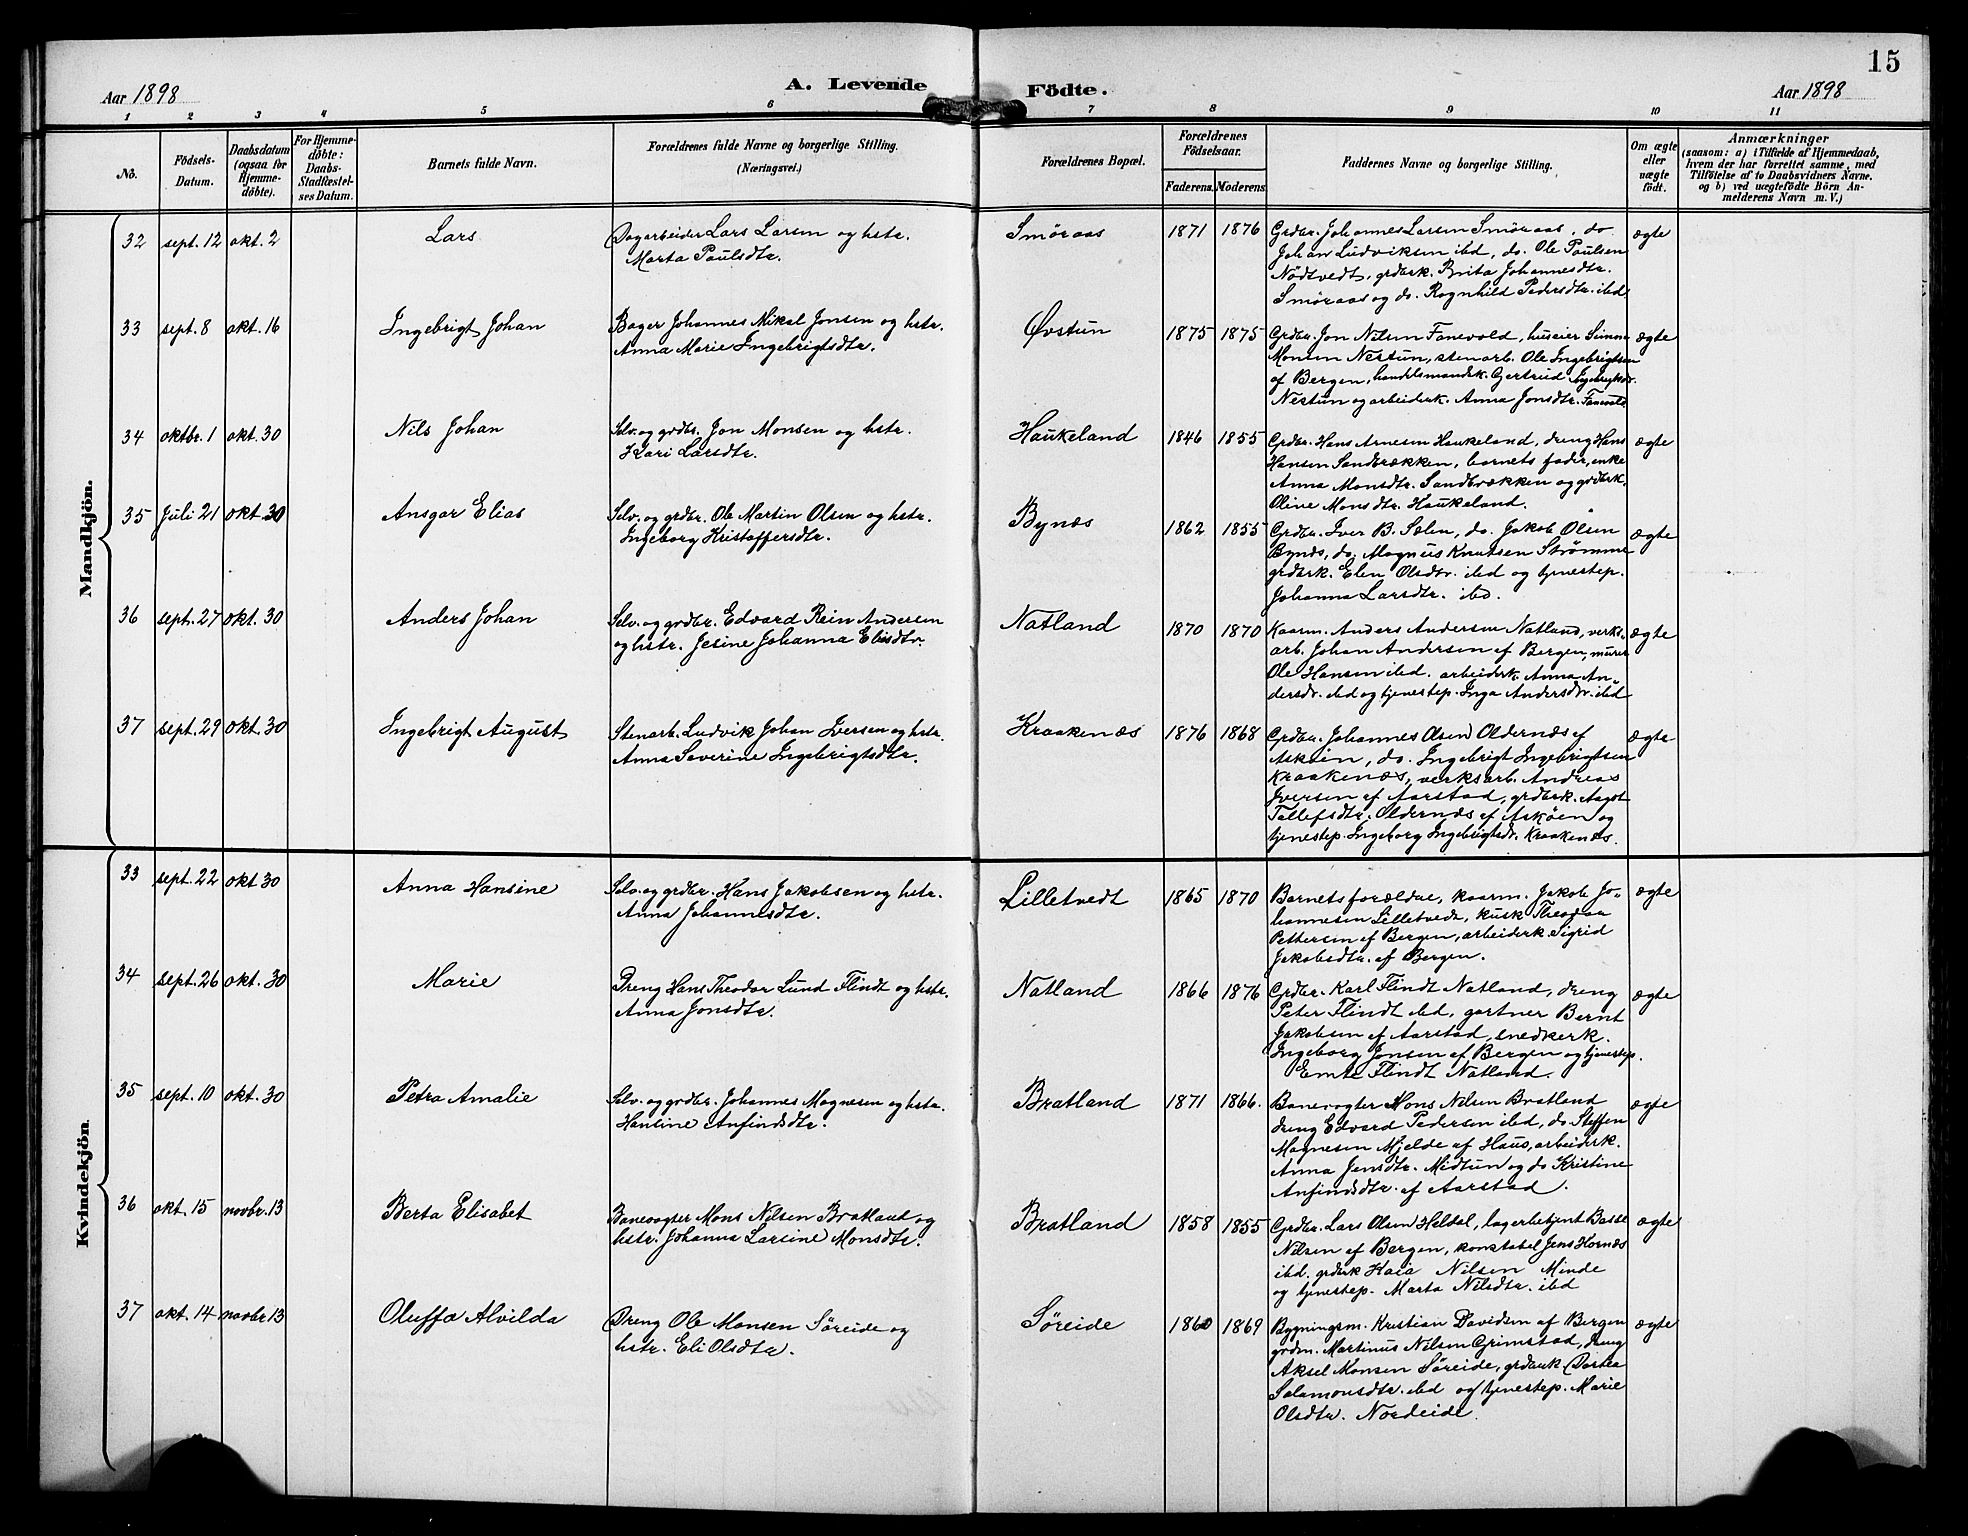 15
Aar 1898
A. Levende
Födte.
Aar 1898
1 2 3 4 5 6 7 8 9 10 11
No.
Födsels-
Datum.
Daabsdatum
(ogsaa for
Hjemme-
døbte).
For Hjemme-
døbte:
Daabs-
Stadfæstel-
ses Datum.
Barnets fulde Navn.
Forældrenes fulde Navne og borgerlige Stilling.
(Næringsvei.)
Forældrenes Bopæl.
Forældrenes
Födselsaar.
Faderens. Moderens.
Faddernes Navne og borgerlige Stilling.
Om ægte
eller
uægte
födt.
Anmærkninger
(saasom: a) i Tilfælde af Hjemmedaab,
hvem der har forrettet samme, med
Tilföielse af to Daabsvidners Navne.
og b) ved uægtefödte Börn An-
melderens Navn m. V.)
Mandkjön.
32 sept. 12 okt. 2 Lars
Dagarbeider Lars Larsen og hstr.
Marta Paulsdtr.
Smöraas 1871 1876
Grdbr. Johannes Larsen Smöraas, do
Johan Ludviksen ibd, do. Ole Paulsen
Nödtvedt, grdbrk. Brita Johannesdtr.
Smöraas og do. Ragnhild Pedersdtr. ibd
ægte
33 sept. 8 okt. 16 Ingebrigt Johan
Bager Johannes Mikal Jonsen og hstr.
Anna Marie Ingebrigtsdtr.
Øvstun 1875 1875
Grdbr. Jon Nilsen Fanevold, huseier Simen
Monsen Nestun, stenarb. Ole Ingebrigtsen
af Bergen, handelsmandsk. Gjertrud Ingebrigtsdtr.
Nestun og arbeidsrk. Anna Jonsdtr. Fanevold
ægte
34 oktbr. 1 okt. 30 Nils Johan
Selv. og grdbr. Jon Monsen og hstr.
Kari Larsdtr.
Haukeland 1846 1855
Grdbr. Hans Arnesen Haukeland, dreng Hans
Hansen Sandbrækken, barnets fader, enke
Anna Monsdtr. Sandbrækken og grdbrk.
Oline Monsdtr. Haukeland.
ægte
35 Juli 21 okt. 30 Ansgar Elias
Selv. og grdbr. Ole Martin Olsen og hstr.
Ingeborg Kristoffersdtr.
Bynæs 1862 1855
Grdbr. Iver B. Sælen, do. Jakob Olsen
Bynæs, do. Magnus Knutsen Strömme
grdbrk. Elen Olsdtr. ibd og tjenestep.
Johanna Larsdtr. ibd.
ægte
36 sept. 27 okt. 30 Anders Johan
Selv. og grdbr. Edvard Rein Andersen
og hstr. Jesine Johanna Elisdtr.
Natland 1870 1870
Kaarm. Anders Andersen Natland, verks-
arb. Johan Andersen af Bergen, murer
Ole Hansen ibd. arbeiderk. Anna An-
dersdtr. ibd og tjenestep. Inga Andersdtr. ibd
ægte
37 sept. 29 okt. 30 Ingebrigt August
Stenarb. Ludvik Johan Iversen og hstr.
Anna Severine Ingebrigtsdtr.
Kraakenæs 1876 1868
Grdbr. Johannes Olsen Oldernæs af
Asköen, do. Ingebrigt Ingebrigtsen
Kraakenæs, verksarb. Andreas
Iversen af Aarstad, grdbrk. Aagot
Tollefsdtr. Oldernæs af Asköen og
tjenestep. Ingeborg Ingebrigtsdtr. Kraakenæs.
ægte
Kvindekjön
33 sept. 22 okt 30 Anna Hansine
Selv. og grdbr. Hans Jakobsen og hstr.
Anna Johannesdtr.
Lilletvedt 1865 1870
Barnets forældre, kaarm. Jakob Jo-
hannesen Lilletvedt, kusk Theodor
Pettersen af Bergen, arbeiderk Sigrid
Jakobsdtr. af Bergen.
ægte
34 sept. 26 okt. 30 Marie
Dreng Hans Theodor Lund Flindt og hstr.
Anna Jonsdtr.
Natland 1866 1876
Grdbr. Karl Flindt Natland, dreng
Peter Flindt ibd, gartner Bernt
Jakobsen af Aarstad, snedkerk.
Ingeborg Jonsen af Bergen og tjenestep.
Emte Flindt Natland.
ægte
35 sept. 10 okt. 30 Petra Amalie
Selv. og grdbr. Johannes Magnesen og hstr.
Hansine Anfindsdtr.
Bratland 1871 1866.
Banevogter Mons Nilsen Bratland
dreng Edvard Pedersen ibd, do Steffen
Magnesen Mjelde af Haus, arbeiderk.
Anna Jensdtr. Midtun og do Kristine
Anfindsdtr. af Aarstad.
ægte
36 okt. 15 novbr. 13 Berta Elisabet
Banevogter Mons Nilsen Bratland og
hstr. Johanna Larsine Monsdtr.
Bratland 1858 1855
Grdbr. Lars Olsen Heldal, lagerbetjent Basse
Nilsen af Bergen, konstabel Jens Hornæs
ibd. grdbrk Kaia Nilsen Minde
og tjenestep. Marta Nilsdtr. ibd
ægte
37 okt. 14 novbr 13 Oluffa Alvilda
Dreng Ole Monsen Søreide og
hstr. Eli Olsdtr.
Søreide 1860 1869
Bygningsm. Kristian Davidsen af Bergen
grdm. Martinus Nilsen Grimstad, dreng
Aksel Monsen Søreide, grdbrk Dortea
Salamonsdtr. ibd og tjenestep. Marie
Olsdtr. Nordeide.
ægte